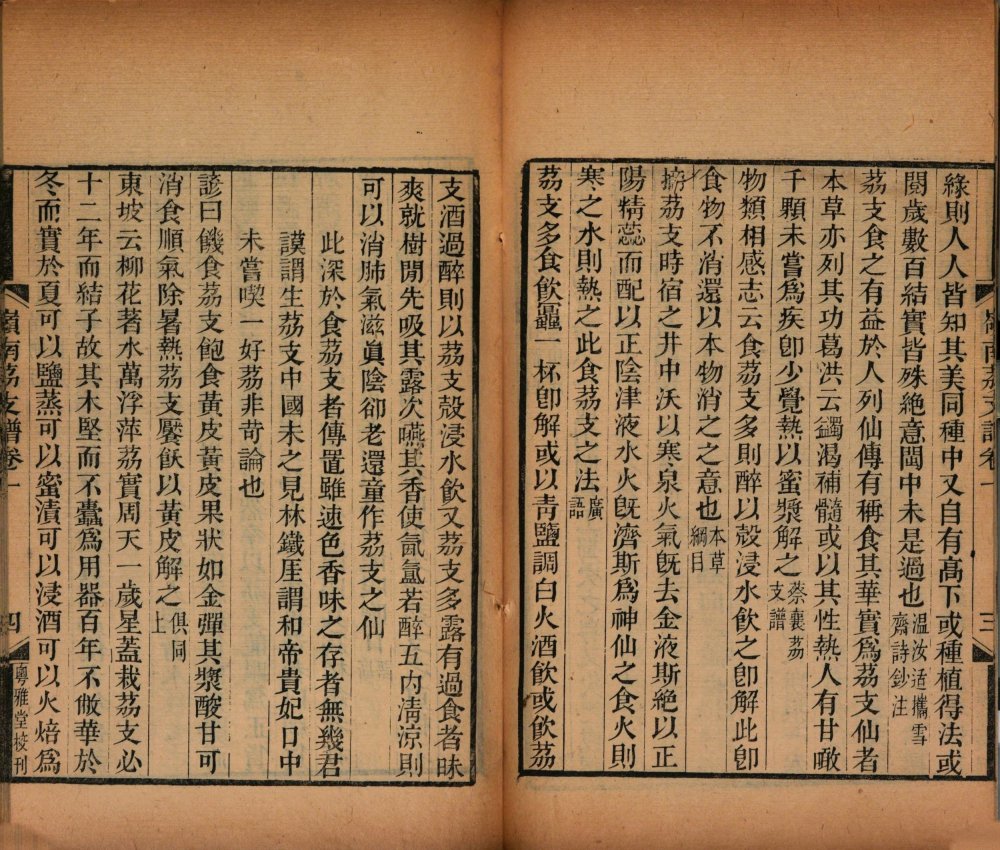 嶺南荔支譜卷一
三
緣則人人皆知其美同種中又自有高下或種植得法或
閱歲數百結實皆殊絕意閩中未是過也温汝适攜雪齋詩鈔注
荔支食之有益於人列仙傳有稱食其華實爲荔支仙者
本草亦列其功葛洪云蠲渴補髓或以其性熱人有甘噉
千顆未嘗爲疾卽少覺熱以蜜漿解之蔡襄荔支譜
物類相感志云食荔支多則醉以殼浸水飲之卽解此卽
食物不消還以本物消之之意也本草綱目
擠荔支時宿之井中沃以寒泉火氣旣去金液斯絕以正
陽精蕊而配以正陰津液水火旣濟斯爲神仙之食火則
寒之水則熱之此食荔支之法廣語
荔支多食飲蠶一杯卽解或以靑鹽調白火酒飲或飲荔
支酒過醉則以荔支殼浸水飲又荔支多露有過食者昧
爽就樹閒先吸其露次嚥其香使氤氳若醉五內清涼則
可以消肺氣滋眞陰卻老還童作荔支之仙
此深於食荔支者傳置雖速色香味之存者無幾君
謨謂生荔支中國未之見林鐵厓謂和帝貴妃口中
未嘗喫一好荔非苛論也
諺曰饑食荔支飽食黃皮黃皮果狀如金彈其漿酸甘可
消食順氣除暑熱荔支饜飫以黃皮解之俱同上
東坡云柳花著水萬浮萍荔實周天一歲星蓋栽荔支必
十二年而結子故其木堅而不蠹爲用器百年不敝華於
冬而實於夏可以鹽蒸可以蜜漬可以浸酒可以火焙爲
嶺南荔支譜卷一
四
粵雅堂校刊